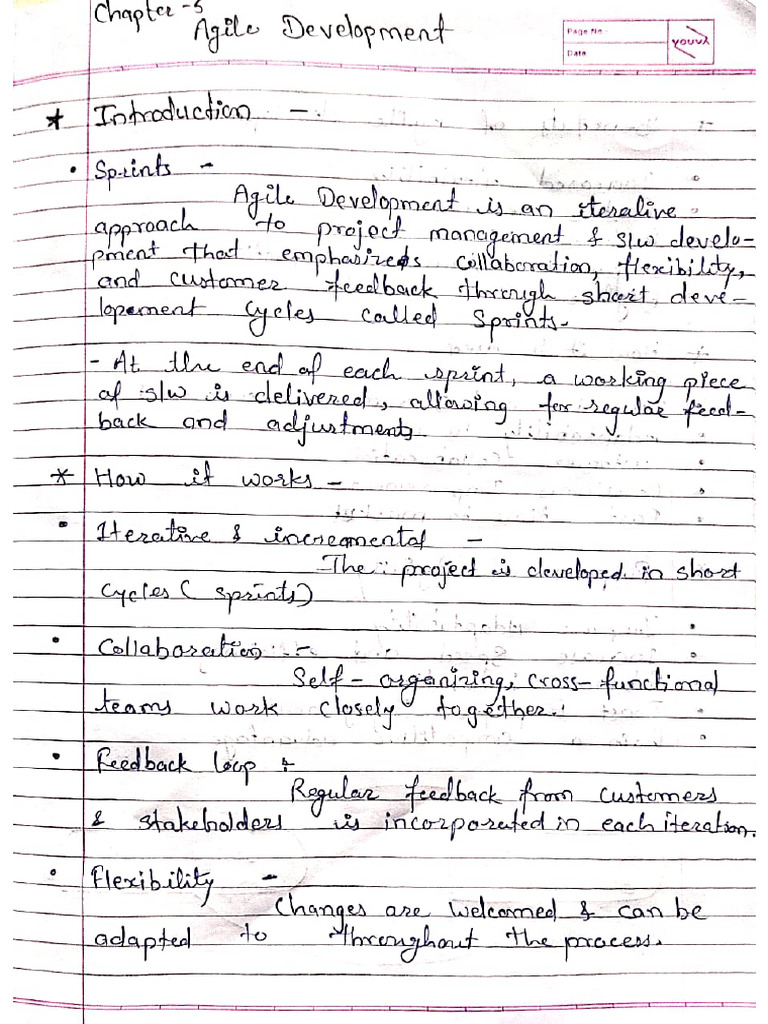 Chapter-5
Agile Development
Page No
Date
youva
* Introduction -
• Sprints -
Agile Development is an iterative
approach to project management & s/w develo-
pment that emphasizes collaboration, flexibility,
and customer feedback through short, deve-
lopement cycles called Sprints.
- At the end of each sprint, a working piece
of s/w is delivered, allowing for regular feed-
back and adjustments
* How it works -
• Iterative & incremental -
The project is developed in short
cycles ( sprints)
• Collaboration -
Self-organizing, cross-functional
teams work closely together.
• Feedback loop :-
Regular feedback from customers
& stakeholders is incorporated in each iteration.
• Flexibility -
Changes are welcomed & can be
adapted to throughout the process.